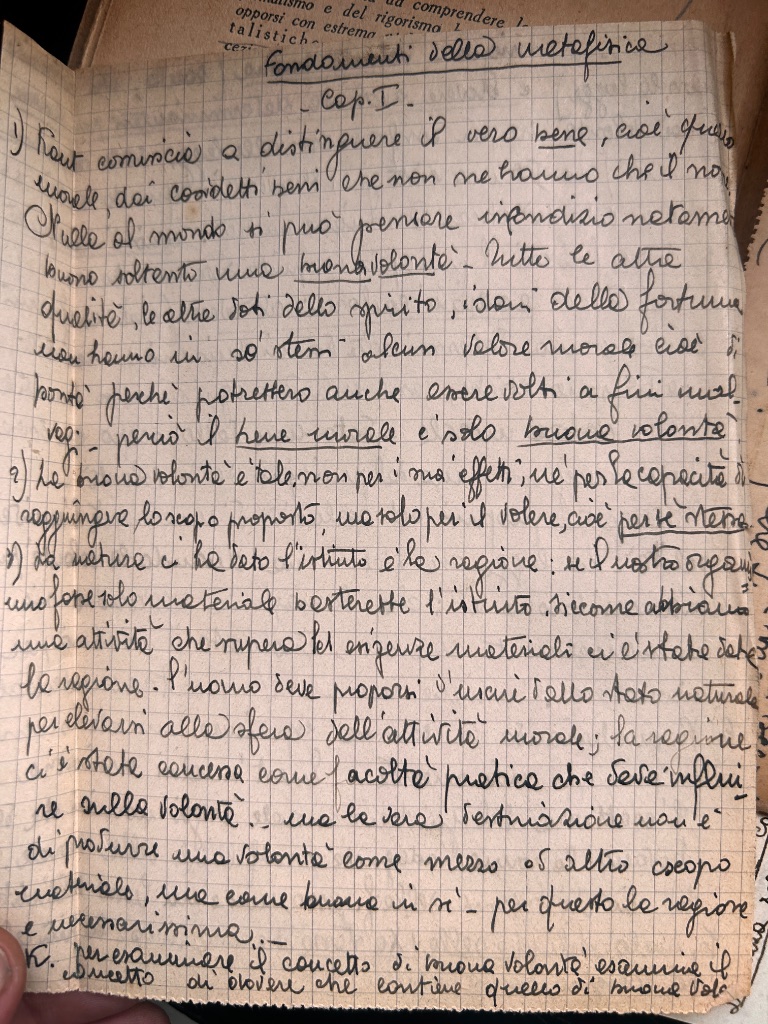 ad comprendere l
malismo e del rigorismo
opporsi con estrema
talistich
Fondamenti della metafisica
- Cap. I -
1) Kant comincia a distinguere il vero bene, cioè quello
morale, dai cosidetti beni che non ne hanno che il no
Nulla al mondo si può pensare incondizionatame
buono soltanto una buona volontà - Tutte le altre
qualità, le altre doti dello spirito, i doni della fortuna
non hanno in sé stessi alcun valore morale cioè di
bontà perché potrebbero anche essere volti a fini mal-
vagi - perciò il bene morale è solo buona volontà
2) La buona volontà è tale, non per i suoi effetti, né per la capacità di
raggiungere lo scopo proposto, ma solo per il volere, cioè per sé stessa
3) La natura ci ha dato l'istinto e la ragione: se il nostro organi
smo fosse solo materiale basterebbe l'istinto, siccome abbiamo
una attività che supera le esigenze materiali ci è stata data
la ragione. L'uomo deve proporsi d'uscire dallo stato naturale
per elevarsi alla sfera dell'attività morale; la ragione
ci è stata concessa come facoltà pratica che deve influi-
re sulla volontà.. ma la vera destinazione non è
di produrre una volontà come mezzo ad altro scopo
materiale, ma come buona in sé - per questo la ragione
è necessarissima..-
K. per esaminare il concetto di buona volontà esamina il
concetto di dovere che contiene quello di buona volo